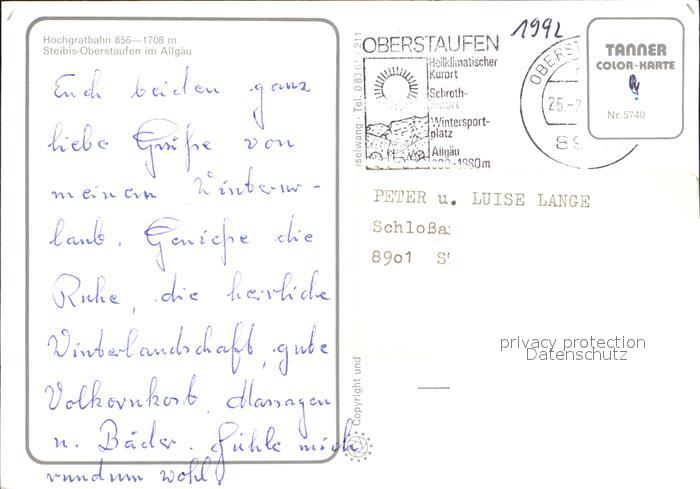 Hochgratbahn 856—1708 m
Steibis-Oberstaufen im Allgäu
Euch beiden ganz
liebe Grüße von
meinem Winterur-
laub. Genieße die
Ruhe, die herrliche
Winterlandschaft, gute
Vollkornkost, Massagen
u. Bäder. Fühle mich
rundum wohl!
selwang · Tel. 0 83 61 / 211
Copyright und
OBERSTAUFEN
Heilklimatischer
Kurort
Schroth-
kurort
Wintersport-
platz
Allgäu
800-1860m
1992
OBERST
25.-2
89
TANNER
COLOR-KARTE
Nr. 5740
PETER u. LUISE LANGE
Schloßa
89o1 S
privacy protection
Datenschutz